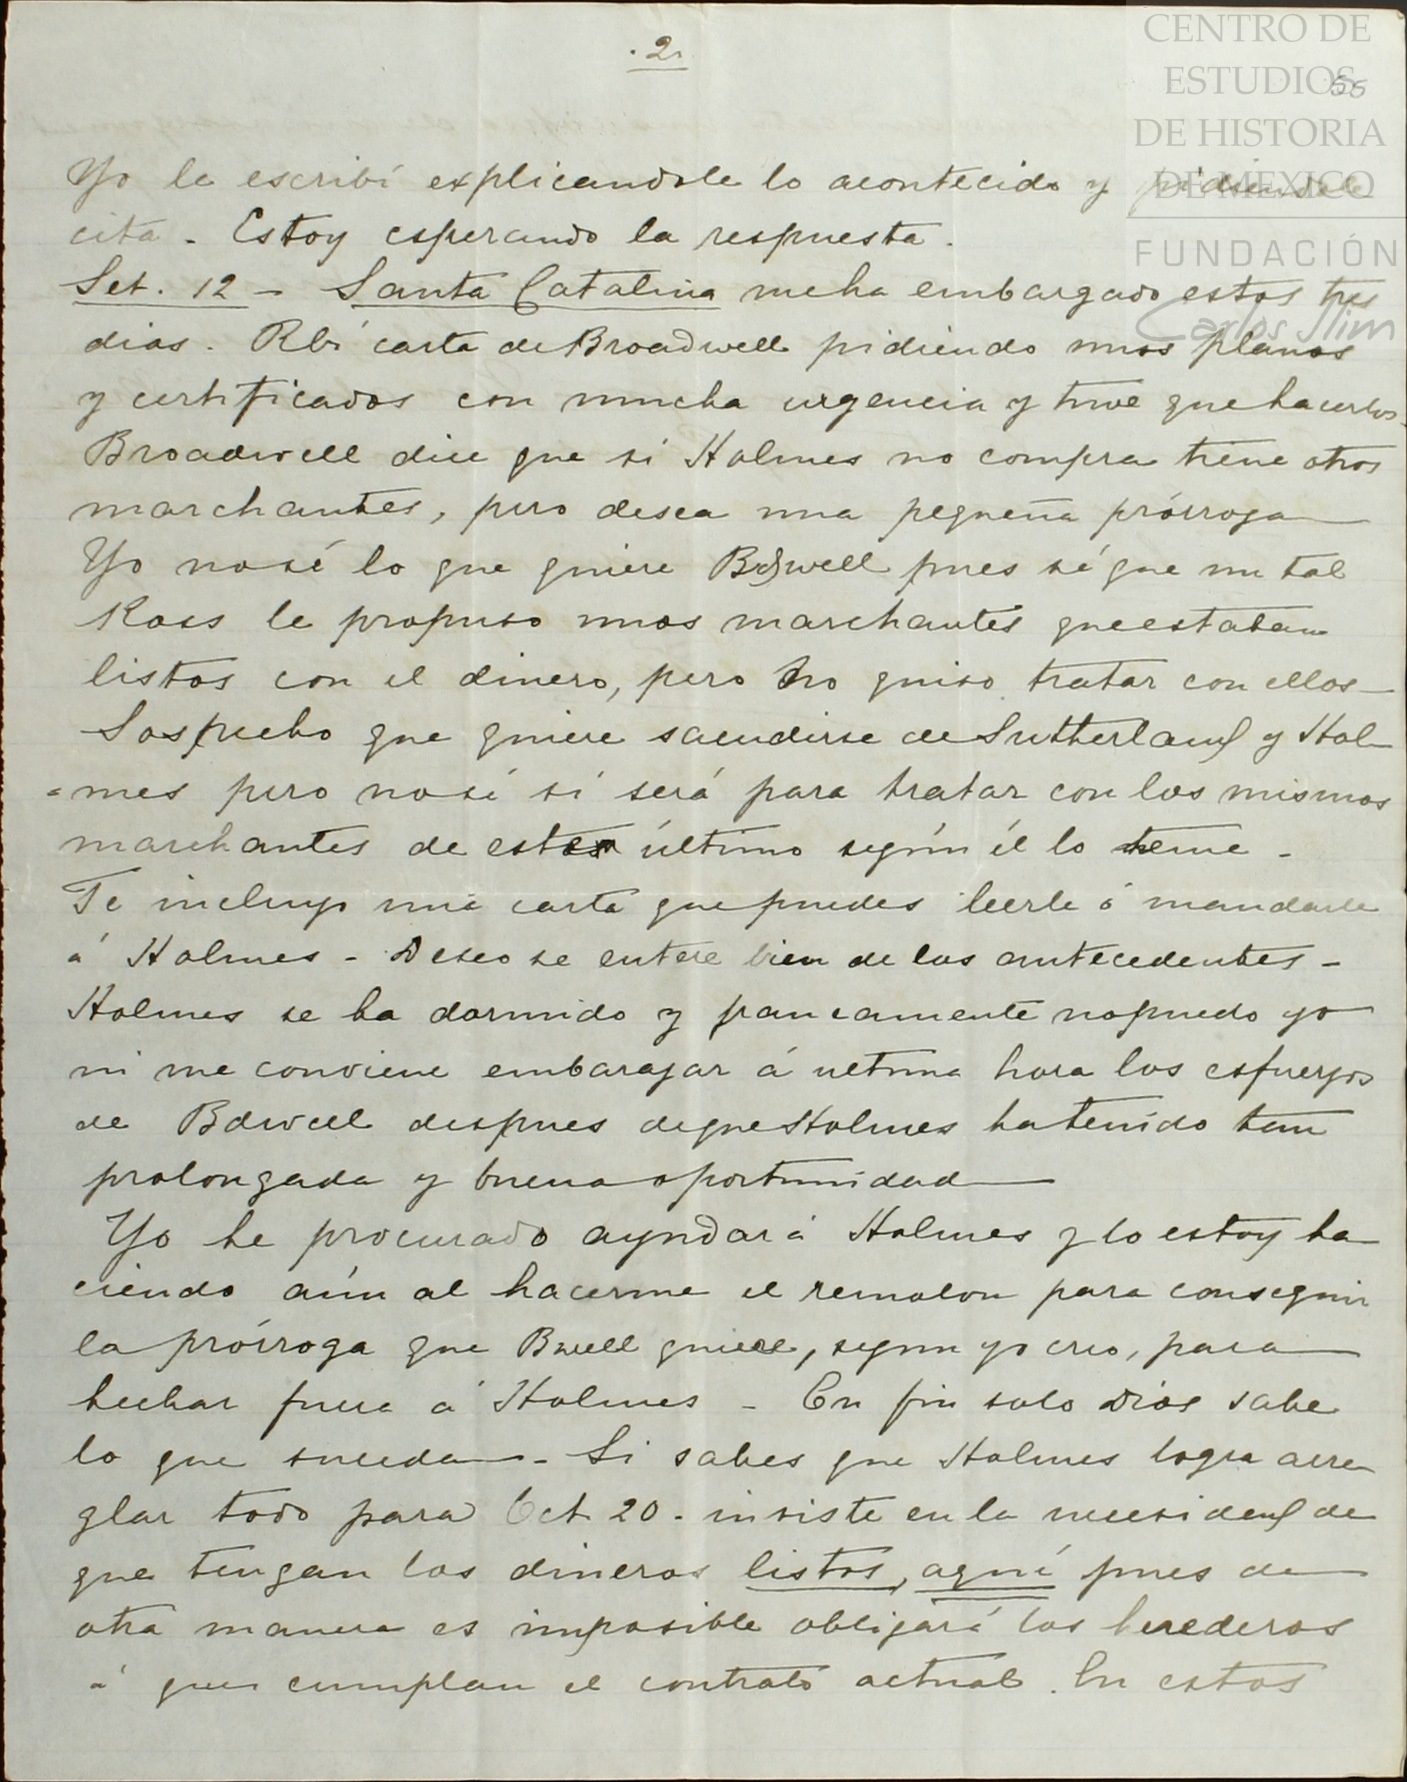 . 2.
55
CENTRO DE
ESTUDIOS
DE HISTORIA
DE MEXICO
FUNDACIÓN
Carlos Slim
Yo le escribí explicandole lo acontecido y pidiendole
cita. Estoy esperando la respuesta.
Set. 12 - Santa Catalina me ha embargado estos tres
dias. Rbí carta de Broadwell pidiendo unos planos
y certificados con mucha urgencia y tuve que hacerlos.
Broadwell dice que si Holmes no compra tiene otros
marchantes, pero desea una pequeña prórroga
Yo no sé lo que quiere Bdwell pues sé que un tal
Ross le propuso unos marchantes que estaban
listos con el dinero, pero no quiso tratar con ellos-
Sospecho que quiere sacudirse de Sutherland y Hol
=mes pero no sé si será para tratar con los mismos
marchantes de este último según él lo teme -
Te incluyo una carta que puedes leerle ó mandarle
á Holmes - Deseo se entere bien de los antecedentes -
Holmes se ha dormido y francamente no puedo yo
ni me conviene embarazar á ultima hora los esfuerzos
de Bdwell despues de que Holmes ha tenido tan
prolongada y buena oportunidad
Yo he procurado ayudar á Holmes y lo estoy ha
ciendo aún al hacerme el remolon para conseguir
la prórroga que Bwell quiere, segun yo creo, para
hechar fuera á Holmes - En fin solo Dios sabe
lo que suceda - Si sabes que Holmes logra arre
glar todo para Oct 20 - insiste en la necesidad de
que tengan los dineros listos, aquí pues de
otra manera es imposible obligar á los herederos
á que cumplan el contrato actual. En estos